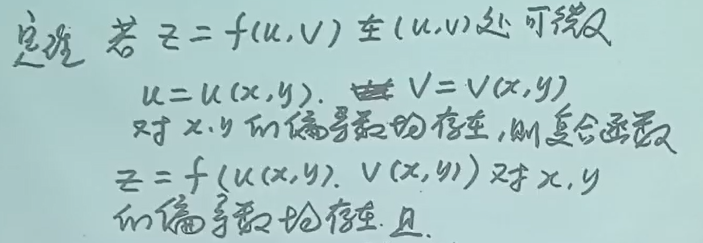 定理 若 z = f(u,v) 在(u,v)处可微又
u = u(x,y). v = v(x,y)
对 x.y 的偏导数均存在,则复合函数
z = f(u(x,y). v(x,y)) 对 x,y
的偏导数均存在.且.